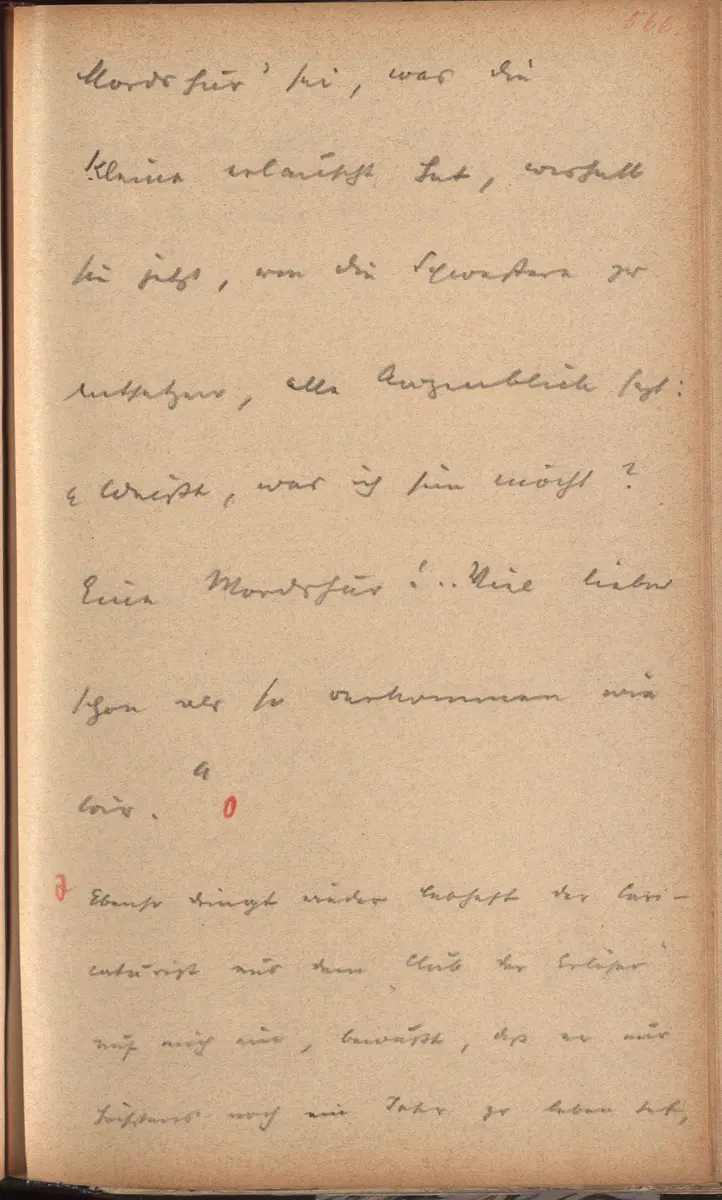 566
Mordshur' sei, was die
Kleine erlauscht hat, weshalb
sie jetzt, um die Schwestern zu
entsetzen, alle Augenblick sagt:
„Weißt, was ich sein möcht?
Eine Mordshur!.. Viel lieber
schon als so verkommen wie
wir.“
0
Ebenso dringt wieder lebhaft der Cari-
caturist aus dem „Club der Erlöser“
auf mich ein, bewußt, daß er nur
höchstens noch ein Jahr zu leben hat,